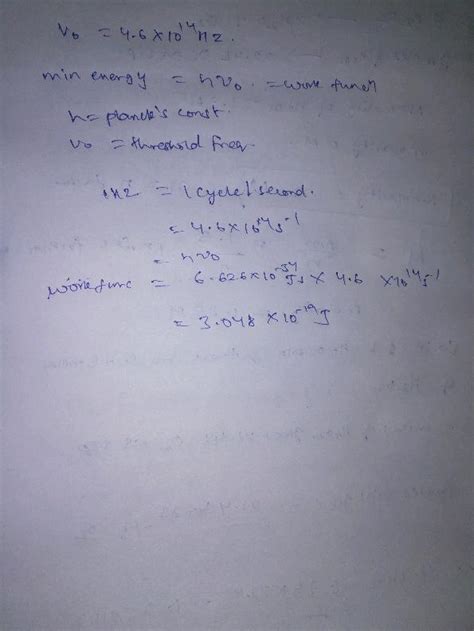 ν₀ = 4.6×10¹⁴Hz.
min energy = hν₀. = work funcⁿ
h = planck's const.
ν₀ = threshold freq.
1HZ = 1 cycle/second.
= 4.6×10¹⁴s⁻¹
= hν₀
work func = 6.626×10⁻³⁴Js × 4.6 ×10¹⁴s⁻¹
= 3.048 ×10⁻¹⁹J